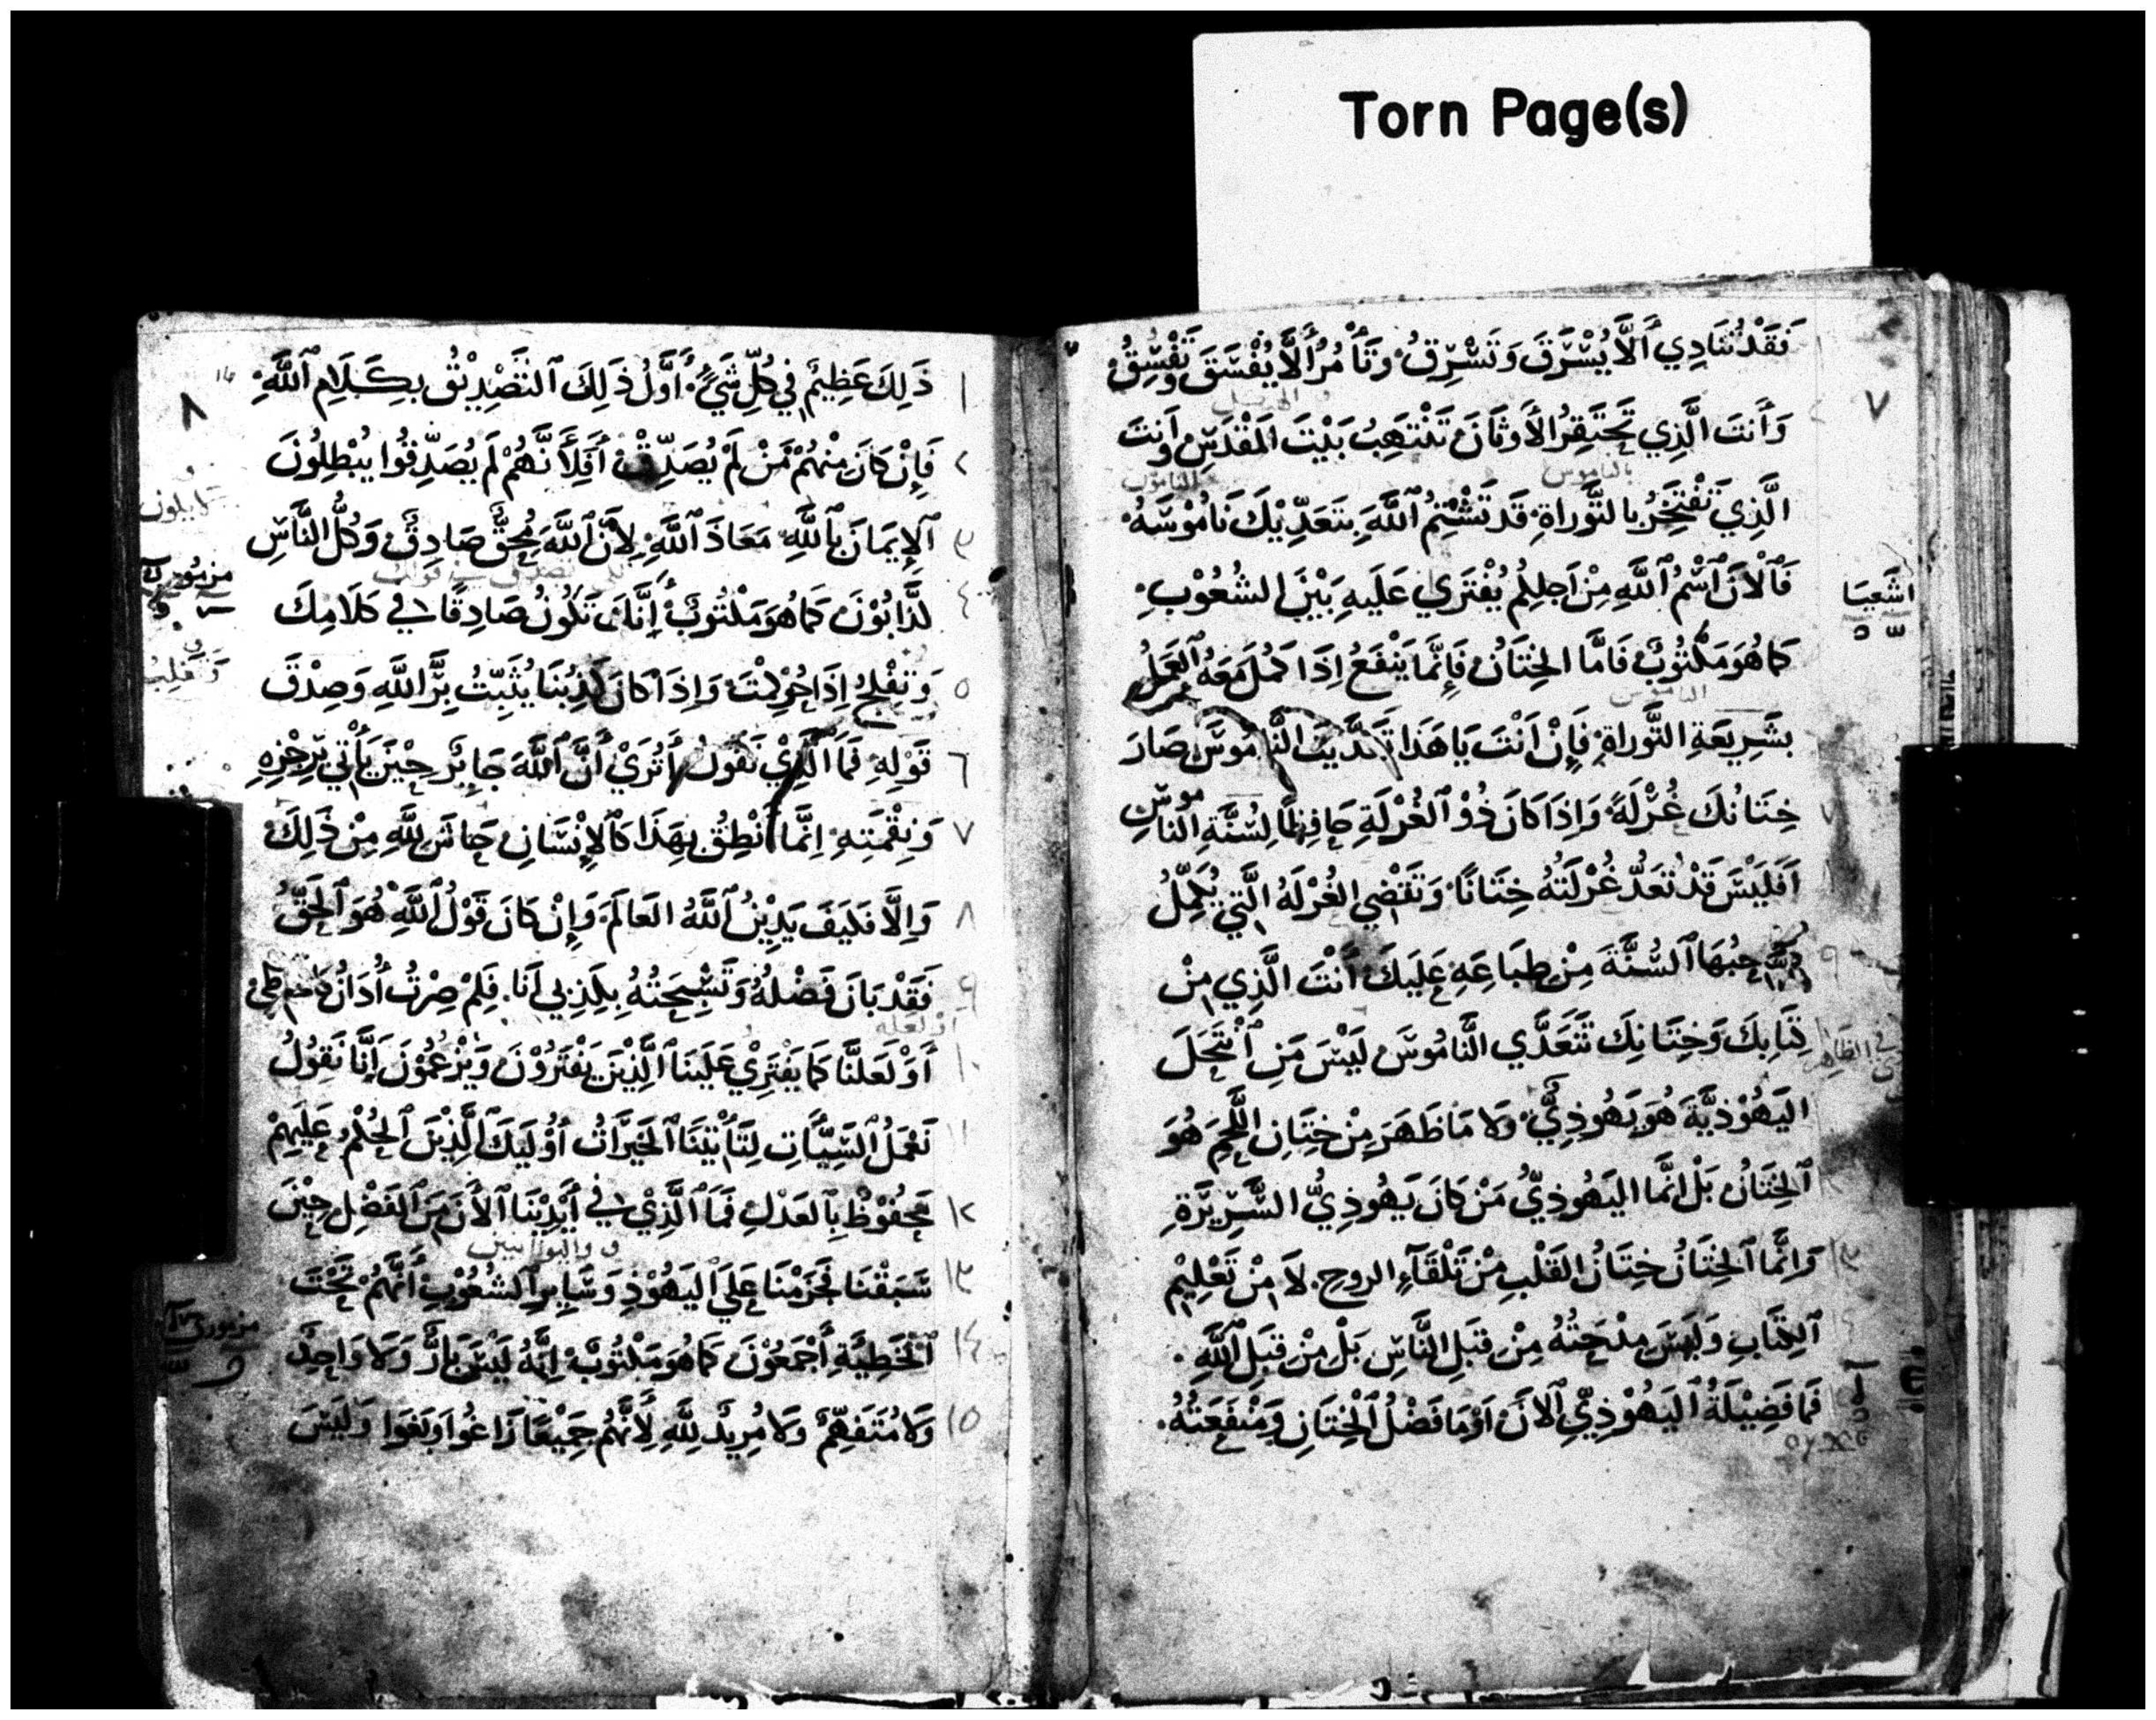 Torn Page(s)
٧
فَقَدْ تُنَادِي أَلَّا يُسْرَقَ وَتَسْرِقُ وَتَأْمُرُ أَلَّا يُفْسَقَ وَتَفْسِقُ
وَأَنتَ الَّذِي تَحْتَقِرُ الأَوثَانَ تَنْتَهِبُ بَيْتَ المَقْدِسِ وَأَنتَ
بالناموس
الَّذِي تَفْتَخِرُ بِالتَّوراةِ قَد تَشْتِمُ ٱللَّهَ بِتَعَدِّيْكَ نَامُوْسَهُ
فَٱلْانَ ٱسْمُ ٱللَّهِ مِنْ اَجلِكُم يُفْتَرَي عَلَيهِ بَيْنَ الشُعُوْبِ
اشَعِيَا
كَمَا هُوَ مَكْتُوبٌ فَامَّا الخِتَانُ فَإِنَّمَا يَنْفَعُ اِذَا كَمُلَ مَعَهُ ٱلعَمَلُ
الناموس
بشَرِيعَةِ التَّوراةِ فَإِنْ اَنْتَ يَا هَذَا تَعَدَّيتَ النَّامُوسَ صَارَ
خِتَانُكَ غُرْلَةً وَاِذَا كَانَ ذُوْ ٱلغُرْلَةِ حَافِظًا لِسُنَّةِ الناموس
اَفَلَيْسَ قَدْ تُعَدُّ غُرْلَتُهُ خِتَانًا وَتَقضِي الغُرْلَهُ الَّتِي يُكَمِّلُ
صَاحِبُهَا ٱلسُّنَّةَ مِنْ طِبَاعِهِ عَلَيكَ أَنْتَ الَّذِي مِنْ
كِتَابِكَ وَخِتَانِكَ تَتَعَدَّي النَّامُوسَ لَيْسَ مَنِ ٱنْتَحَلَ
في الظاهر
اليَهُوْذِيَّةَ هُوَ يَهُوذِيٌّ وَلا مَا ظَهَرَ مِنْ خِتَانِ اللَّحْمِ هُوَ
ٱلخِتَانُ بَلْ اِنَّمَا اليَهُوذِيُّ مَنْ كَانَ يَهُوذِيُّ السَّرِيْرَةِ
وَاِنَّمَا ٱلخِتَانُ خِتَانُ القَلْبِ مِنْ تَلْقَآءِ الروحِ لاَ مِنْ تَعْلِيْمِ
ٱلكِتَابِ وَلَيسَ مِدْحَتُهُ مِنْ قِبَلِ النَّاسِ بَلْ مِنْ قِبَلِ ٱللَّهِ
فَمَا فَضِيْلَةُ ٱليَهُوْذِيِّ ٱلانَ اَوْ مَا فَضْلُ ٱلْخِتَانِ وَمَنْفَعَتُهُ
٨
١ ذَلِكَ عَظِيمٌ فِي كُلِّ شَيْءٍ أَوَّلُ ذَلِكَ ٱلتَصْدِيْقُ بِكَلَامِ ٱللَّهِ
٢ فَإِنْ كَانَ مِنْهُمْ مَنْ لَمْ يُصَدِّقْ أَفَلِأَنَّهُمْ لَم يُصَدِّقُوا يُبْطِلُونَ
٣ ٱلإِيمَانَ بٱللَّهِ مَعَاذَ ٱللَّهِ لِأَنَّ ٱللَّهَ مُحِقٌّ صَادِقٌ وَكُلُّ النَّاسِ
مزمور
٤ كَذَّابُوْنَ كَمَا هُوَ مَكْتُوبٌ إِنَّكَ تَكُونُ صَادِقًا فِي كَلَامِكَ
٥ وَتَفْلِجُ اِذَا حُوكِمْتَ وَاِذَا كَانَ كَذِبُنَا يُثَبِّتُ بِرَّ اللَّهِ وَصِدْقَ
٦ قَوْلِهِ فَمَا ٱلَّذِيْ نَقُولُ أَتُرَيْ أَنَّ ٱللَّهَ جَايِرٌ حِيْنَ يَأْتِي بِرِجْزِهِ
٧ وَنِقْمَتِهِ اِنَّمَا أَنْطِقُ بِهَذَا كَٱلإِنْسَانِ حَاشَ لِلَّهِ مِنْ ذَلِكَ
٨ وَاِلَّا فَكَيفَ يَدِيْنُ ٱللَّهُ العَالَمَ وَإِنْ كَانَ قَوْلُ ٱللَّهِ هُوَ ٱلحَقُّ
٩ فَقَدْ بَانَ فَضْلُهُ وَتَسْبِحَتُهُ بِكَذِبِي اَنَا فَلِمْ صِرْتُ أُدَانُ
او لعله
١٠ أَوْ لَعَلَّنَا كَمَا يَفْتَرِيْ عَلَيْنَا ٱلَّذِيْنَ يَفْتَرُوْنَ وَيَزْعُمُوْنَ اَنَّا نَقُولُ
١١ نَعْمَلُ ٱلسَّيِّأَتِ لِتَأْتِيْنَا ٱلخَيْرَاتُ أُوْلَيِكَ ٱلَّذِيْنَ ٱلحُكْمُ عَلَيهِمْ
١٢ مَحْفُوْظٌ بِٱلعَدْلِ فَمَا ٱلَّذِيْ فِي أَيْدِيْنَا ٱلأَنَ مِنَ ٱلفَضْلِ حِيْنَ
واليونانيين
١٣ سَبَقْنَا فَحَرَمْنَا عَلَيَ ٱليَهُوْدِ وَسَايِرِ ٱلشُعُوْبِ أَنَّهُمْ تَحْتَ
مزمور
١٤ ٱلْخَطِيَّةِ أَجْمَعُوْنَ كَمَا هُوَ مَكْتُوبٌ اِنَّهُ لَيْسَ بَارٌّ وَلا وَاحِدٌ
١٥ وَلا مُتَفَهِّمٌ وَلا مُرِيدٌ لِلَّهِ لِأَنَّهُم جَمِيْعًا زَاغُوا وَبَغَوا وَلَيْسَ